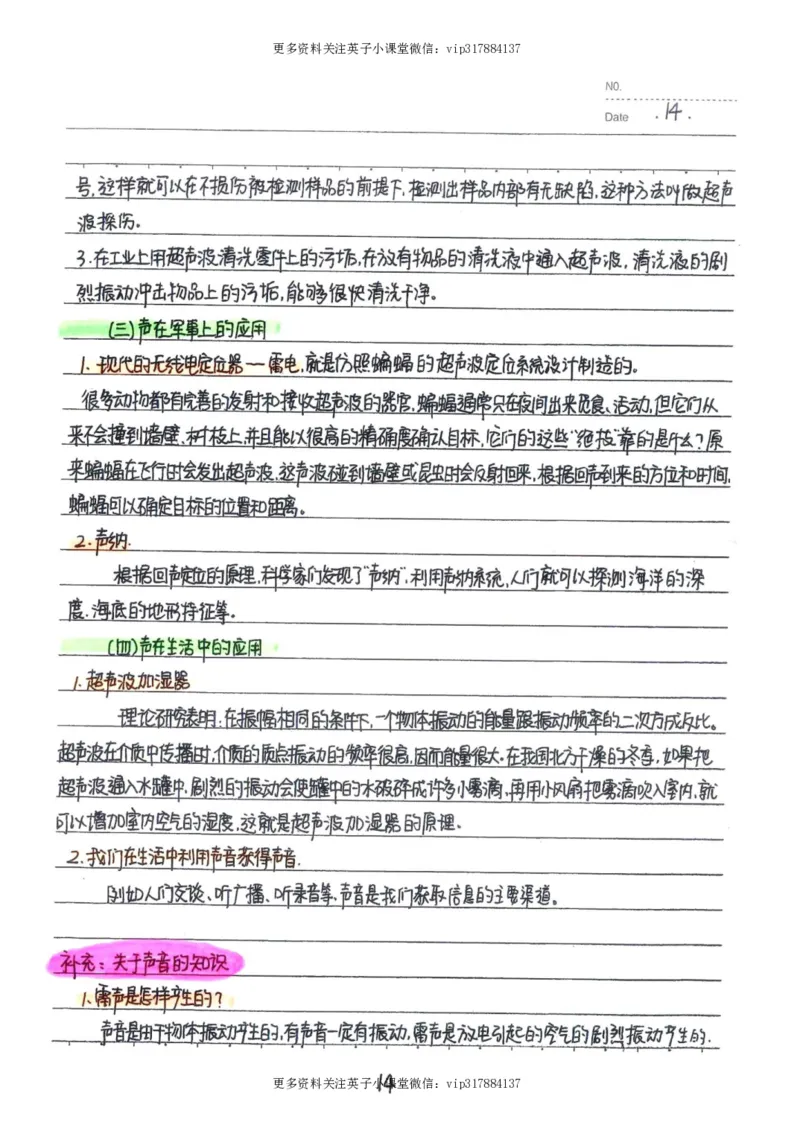 更多资料关注英子小课堂微信：vip317884137
NO.
Date .14.
号,这样就可以在不损伤被检测样品的前提下,检测出样品内部有无缺陷,这种方法叫做超声
波探伤。
3.在工业上用超声波清洗零件上的污垢,在放有物品的清洗液中通入超声波,清洗液的剧
烈振动冲击物品上的污垢,能够很快清洗干净。
(三)声在军事上的应用
1.现代的无线电定位器——雷电,就是仿照蝙蝠的超声波定位系统设计制造的。
很多动物都有完善的发射和接收超声波的器官,蝙蝠通常只在夜间出来觅食、活动,但它们从
来不会撞到墙壁、树枝上,并且能以很高的精确度确认目标,它们的这些"绝技"靠的是什么?原
来蝙蝠在飞行时会发出超声波,这声波碰到墙壁或昆虫时会反射回来,根据回声到来的方位和时间,
蝙蝠可以确定目标的位置和距离。
2.声纳.
根据回声定位的原理,科学家们发现了"声纳",利用声纳系统,人们就可以探测海洋的深
度、海底的地形特征等。
(四)声在生活中的应用
1.超声波加湿器
理论研究表明:在振幅相同的条件下,一个物体振动的能量跟振动频率的二次方成反比。
超声波在介质中传播时,介质的质点振动的频率很高,因而能量很大.在我国北方干燥的冬季,如果把
超声波通入水罐中,剧烈的振动会使罐中的水破碎成许多小雾滴,再用小风扇把雾滴吹入室内,就
可以增加室内空气的湿度,这就是超声波加湿器的原理.
2.我们在生活中利用声音获得声音.
例如人们交谈、听广播、听录音等,声音是我们获取信息的主要渠道。
补充:关于声音的知识
1.雷声是怎样产生的?
声音是由于物体振动产生的,有声音一定有振动,雷声是放电引起的空气的剧烈振动产生的.
更多资料关注英子小课堂微信：vip317884137
14